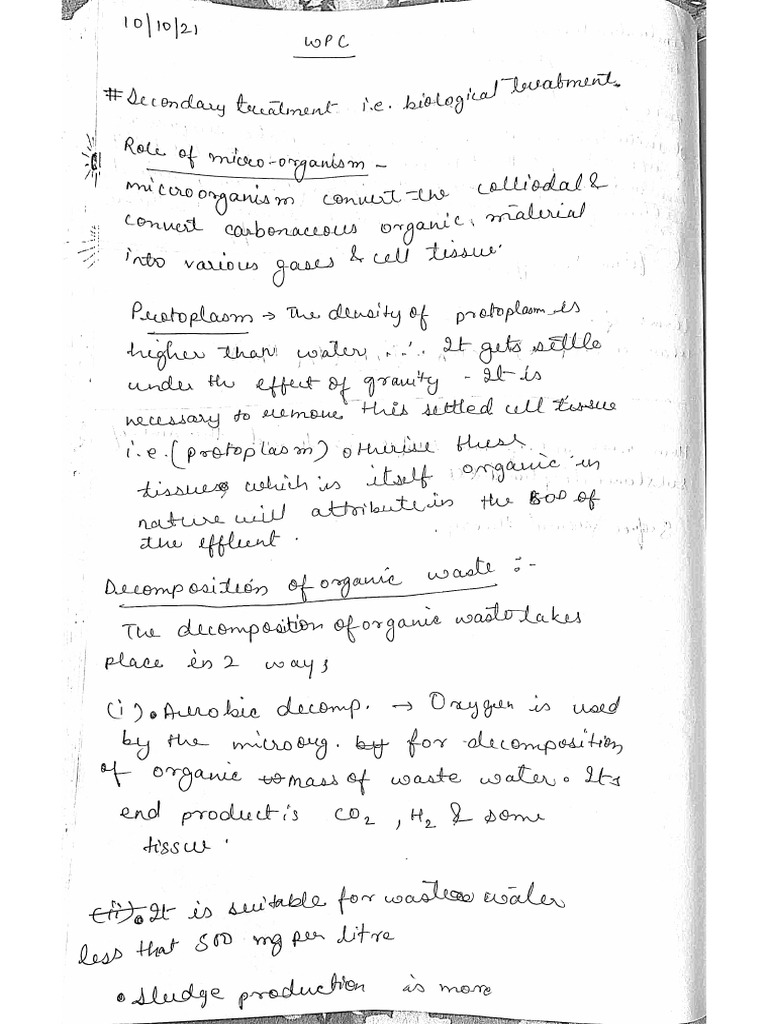 10/10/21
WPC
# Secondary treatment i.e. biological treatment.
Role of micro-organism -
microorganism convert the colliodal &
convert carbonaceous organic material
into various gases & cell tissue.
Protoplasm → The density of protoplasm is
higher than water ∴ It gets settle
under the effect of gravity - It is
necessary to remove this settled cell tissue
i.e. (protoplasm) otherise these
tissues which is itself organic in
nature will attribute in the BOD of
the effluent.
Decomposition of organic waste :-
The decomposition of organic waste takes
place in 2 ways
(i). Aerobic decomp. → Oxygen is used
by the microorg. by for decomposition
of organic mass of waste water. Its
end product is CO2, H2 & some
tissue.
(ii). It is suitable for waste water
less that 500 mg per litre
• Sludge production is more